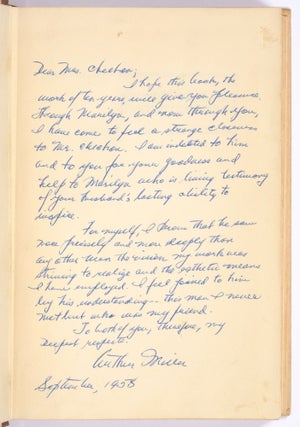 Dear Mrs. Chekhov;
I hope this book, the
work of ten years, will give you pleasure.
Through Marilyn, and now through you,
I have come to feel a strange closeness
to Mr. Chekhov. I am indebted to him
and to you for your goodness and
help to Marilyn who is living testimony
of your husband's lasting ability to
inspire.
For myself, I know that he saw
more precisely and more deeply than
any other man the vision my work was
striving to realize and the esthetic means
I have employed. I feel joined to him
by his understanding - this man I never
met but who was my friend.
To both of you, therefore, my
deepest respects.
Arthur Miller
September, 1958